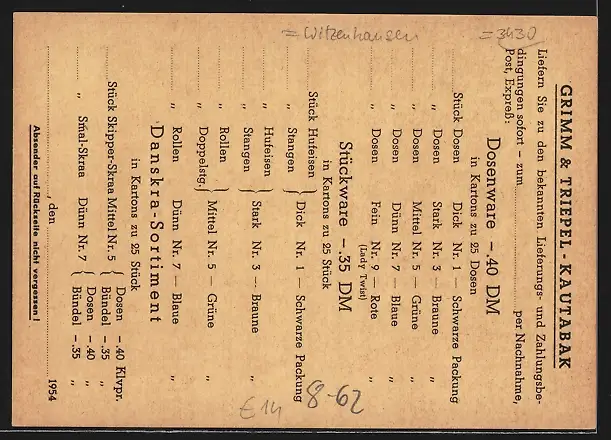 = Witzenhausen
= 3430
GRIMM & TRIEPEL - KAUTABAK
Liefern Sie zu den bekannten Lieferungs- und Zahlungsbe-
dingungen sofort – zum ............ per Nachnahme,
Post, Expreß:
Dosenware –.40 DM
in Kartons zu 25 Dosen
............ Stück Dosen Dick Nr. 1 — Schwarze Packung
............ „ Dosen Stark Nr. 3 — Braune „
............ „ Dosen Mittel Nr. 5 — Grüne „
............ „ Dosen Dünn Nr. 7 — Blaue „
............ „ Dosen Fein Nr. 9 — Rote „
(Lady Twist)
Stückware –.35 DM
in Kartons zu 25 Stück
............ Stück Hufeisen } Dick Nr. 1 — Schwarze Packung
............ „ Stangen
............ „ Hufeisen } Stark Nr. 3 — Braune „
............ „ Stangen
............ „ Rollen } Mittel Nr. 5 — Grüne „
............ „ Doppelstg.
............ „ Rollen Dünn Nr. 7 — Blaue „
Danskra-Sortiment
in Kartons zu 25 Stück
............ Stück Skipper-Skraa Mittel Nr. 5 { Dosen –.40 Klvpr.
Bündel –.35 „
............ „ Smal-Skraa Dünn Nr. 7 { Dosen –.40 „
Bündel –.35 „
............, den ............ 1954
Absender auf Rückseite nicht vergessen!
8-62
E14